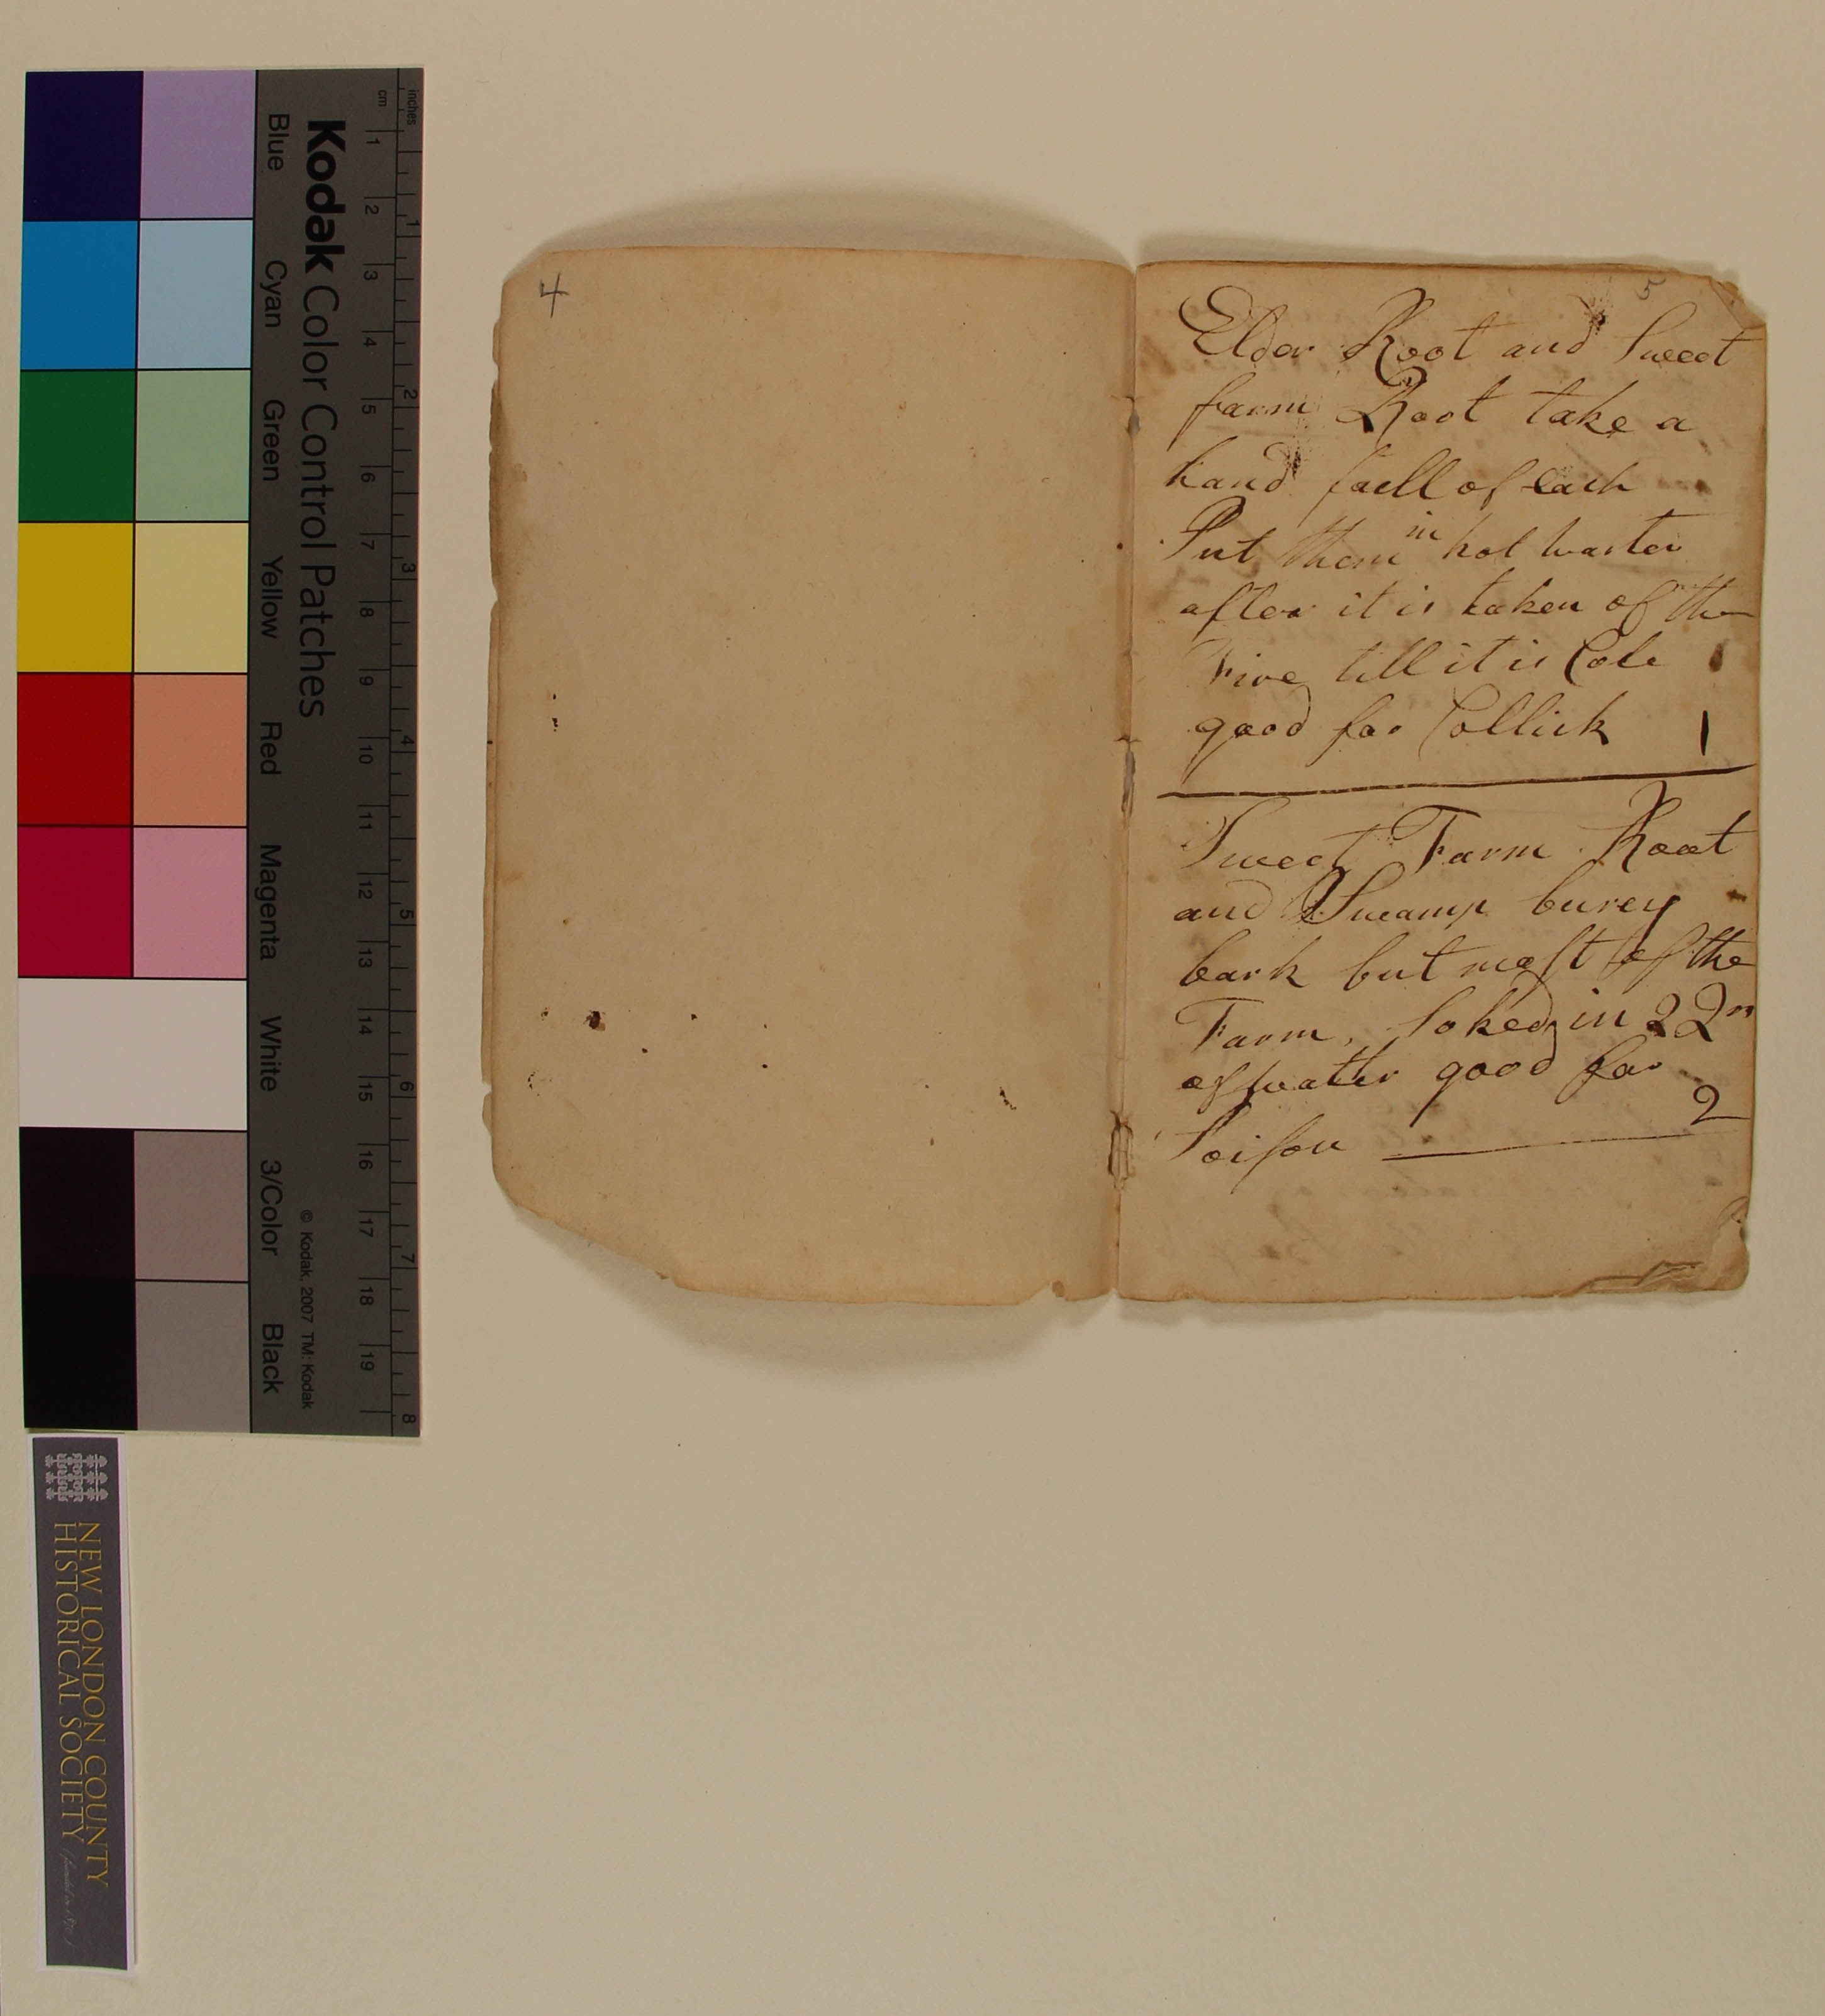 Kodak Color Control Patches
© Kodak, 2007 TM: Kodak
Blue Cyan Green Yellow Red Magenta White 3/Color Black
cm 1 2 3 4 5 6 7 8 9 10 11 12 13 14 15 16 17 18 19
inches 1 2 3 4 5 6 7 8
NEW LONDON COUNTY
HISTORICAL SOCIETY
4
5
Elder Root and Sweet
farm Root take a
hand faell of each
Put them in hot warter
after it is taken of the
Fire till it is Cole
good for Collick 1
Sweet Farm Root
and Swamp burey
bark but most of the
Farm, Soked in 2 Qn
of watter good for
Poison 2